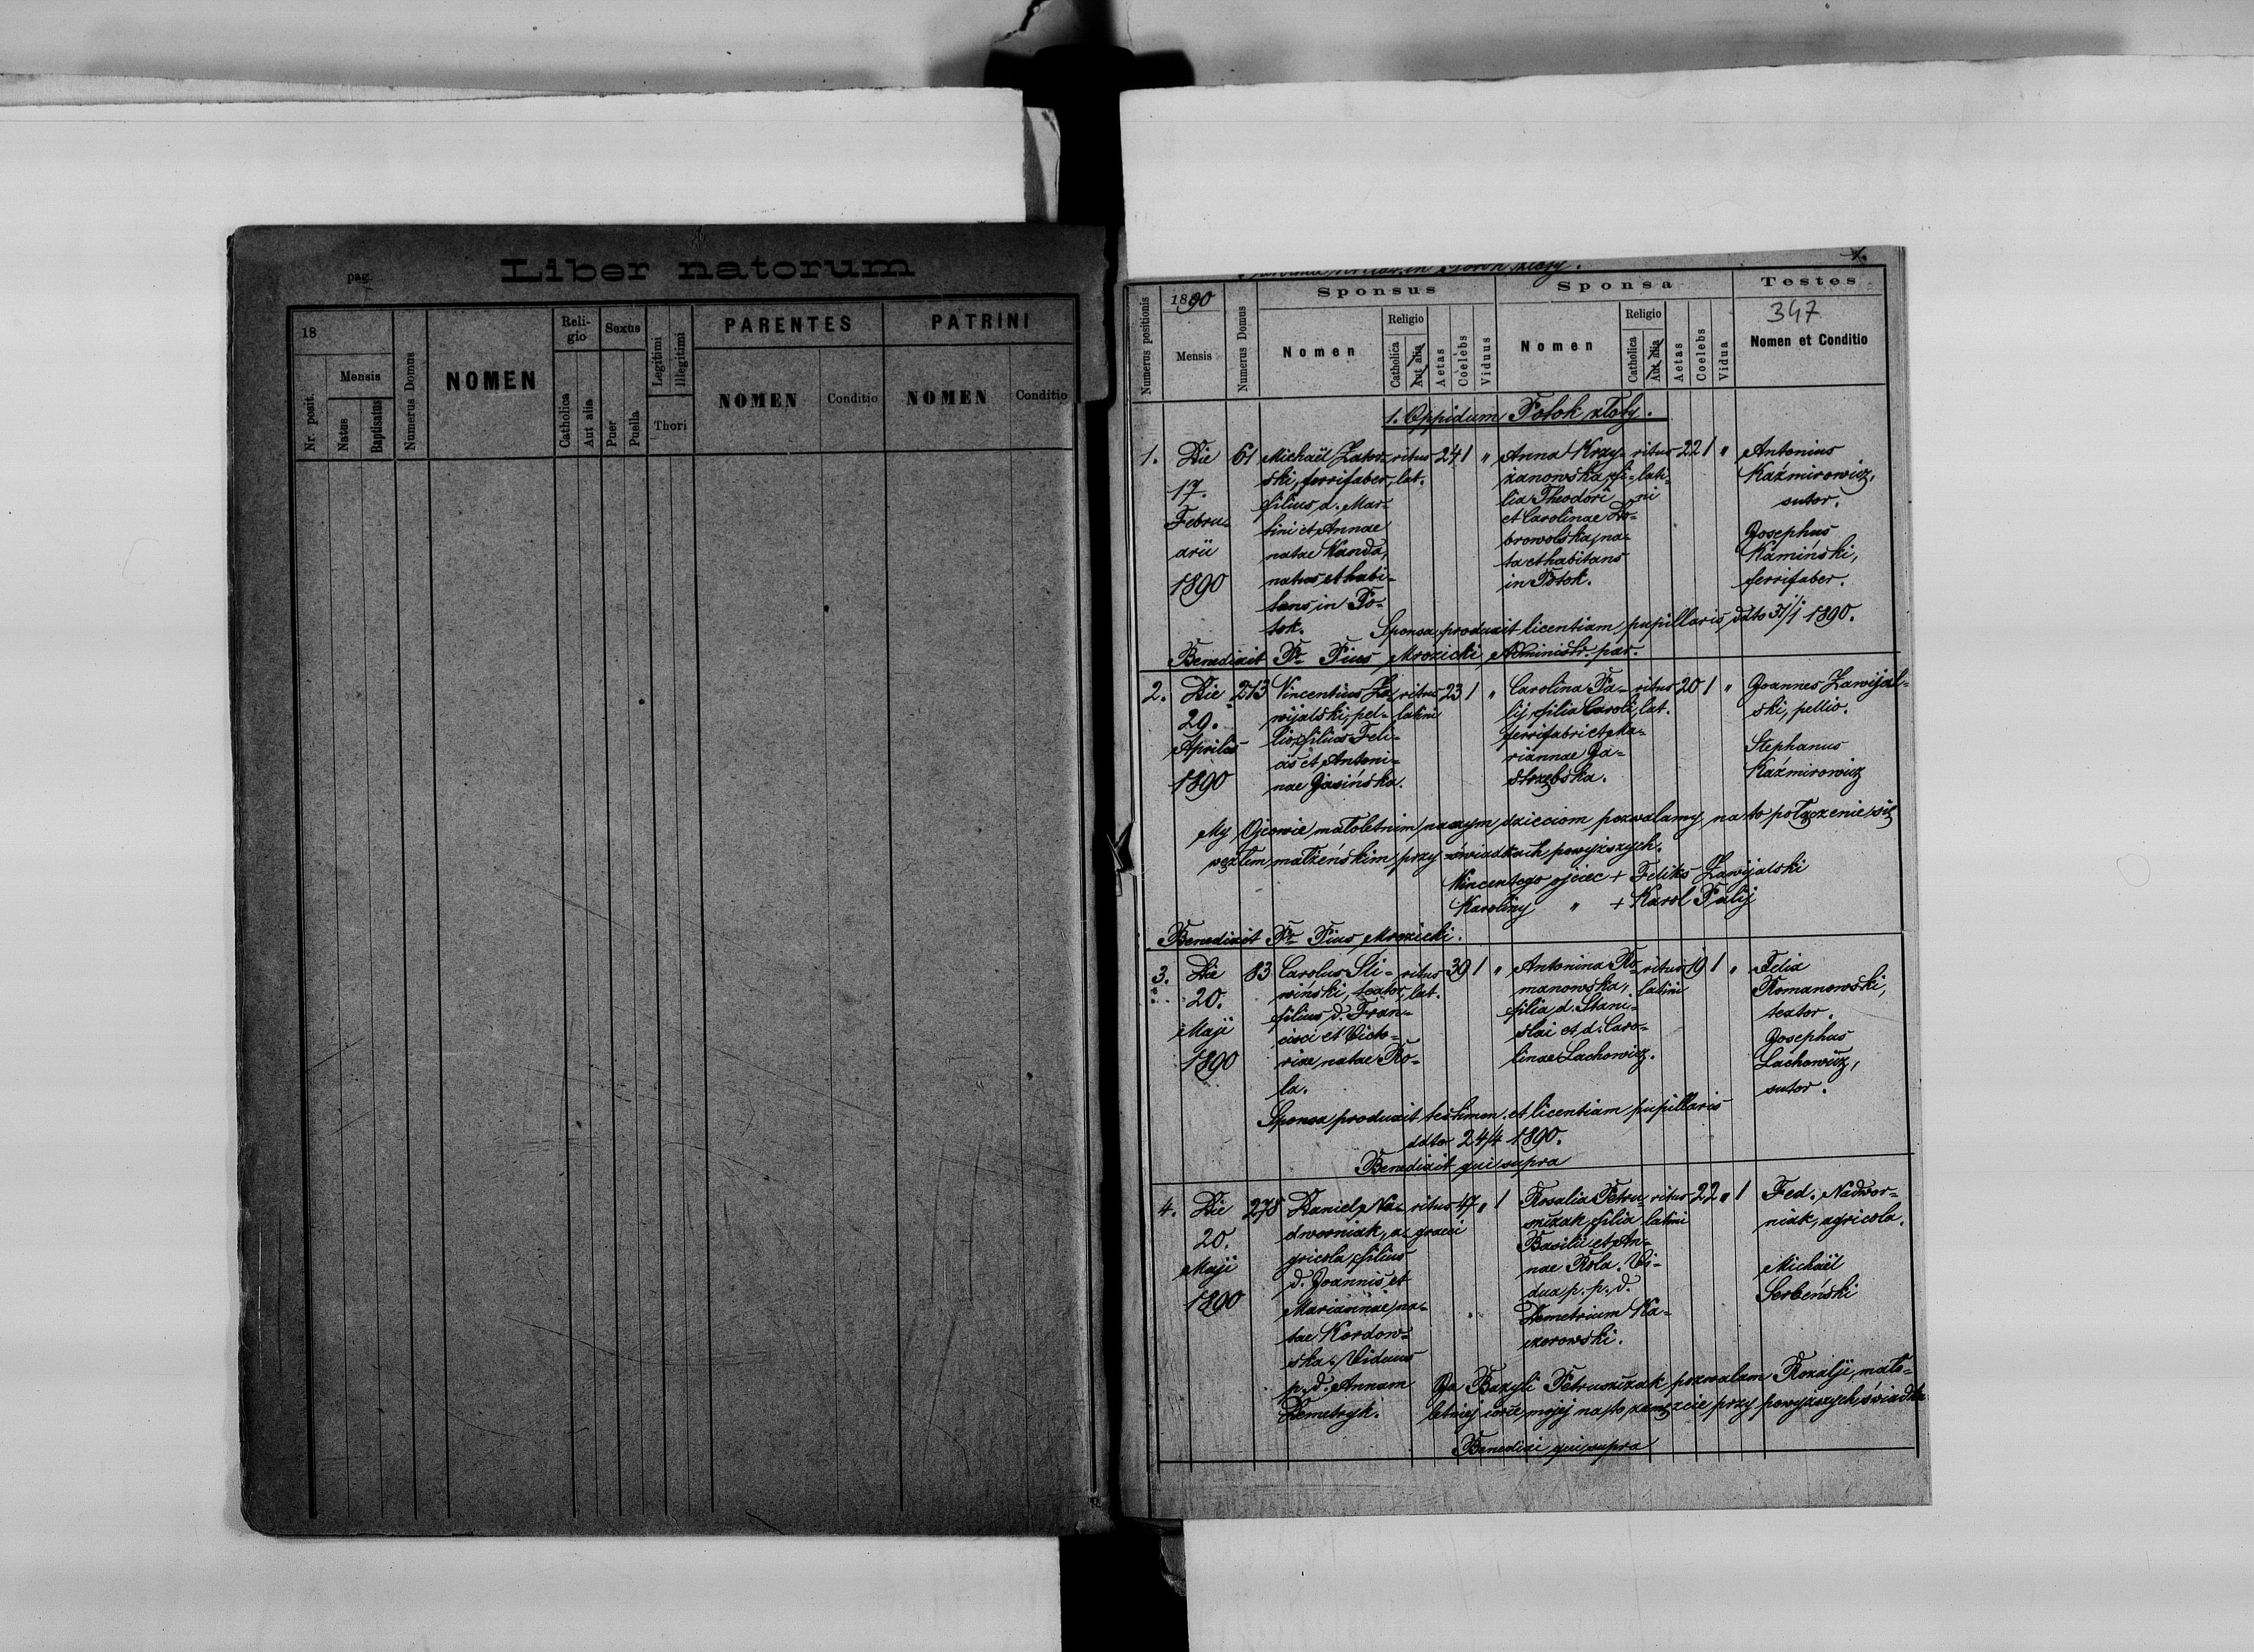 pag.
Liber natorum
18
Mensis
Nr. posit.
Natus
Baptisatus
Numerus Domus
NOMEN
Reli-
gio
Catholica
Aut alia
Sexus
Puer
Puella
Legitimi
Illegitimi
Thori
PARENTES
NOMEN
Conditio
PATRINI
NOMEN
Conditio
Numerus positionis
1890
Mensis
Numerus Domus
Sponsus
Nomen
Religio
Catholica
Aut alia
Aetas
Coelebs
Viduus
Sponsa
Nomen
Religio
Catholica
Aut alia
Aetas
Coelebs
Vidua
Testes
347
Nomen et Conditio
1. Oppidum Potok złoty.
1.
Die
17.
Febru-
arii
1890
61
Michaël
ski, ferrifaber,
filius d. Mar-
tini et Annae
natae Kanda,
natus et habi-
tans in Po-
tok.
ritus
lat.
24 1 "
Anna Krzy-
żanowska, fi-
lia Theodori
et Carolinae Do-
browolska, na-
ta et habitans
in Potok.
ritus
lati-
ni
22 1 "
Antonius
Kaźmirowicz,
sutor.
Josephus
Kamiński,
ferrifaber.
Sponsa produxit licentiam pupillaris ddto 31/1 1890.
Benedixit Pr. Pius Mrozicki Administr. par.
2.
Die
29.
Aprilis
1890
273
Vincentius Za-
wijalski, pel-
lio, filius Feli-
cis et Antoni-
nae Jasińska.
ritus
latini
23 1 "
Carolina Pa-
lij, filia Caroli
ferrifabri et Ma-
riannae Ja-
strzębska.
ritus
lat.
20 1 "
Joannes Zawijal-
ski, pellio.
Stephanus
Kaźmirowicz
My Ojcowie małoletnim naszym dzieciom pozwalamy na to połączenie się
węzłem małżeńskim przy świadkach powyższych.
Wincentego ojciec + Feliks Zawijalski
Karoliny " + Karol Palij
Benedixit Pr. Pius Mrozicki.
3.
Die
20.
Maji
1890
83
Carolus Śli-
wiński, textor,
filius d. Fran-
cisci et Victo-
riae natae Ro-
la.
ritus
lat.
39 1 "
Antonina Ro-
manowska,
filia d. Stani-
slai et d. Caro-
linae Lachowicz.
ritus
latini
19 1 "
Felix
Romanowski,
textor.
Josephus
Lachowicz,
sutor.
Sponsa produxit testimon. et licentiam pupillaris
ddto 24/4 1890.
Benedixit qui supra
4.
Die
20.
Maji
1890
278
Daniel Na-
dworniak, a-
gricola, filius
d. Joannis et
Mariannae, na-
tae Kordow-
ska. Viduus
p. d. Annam
Demetryk.
ritus
graeci
47 " 1
Rosalia Petru-
szczak, filia
Basilii et An-
nae Rola. Vi-
dua p. p. d.
Demetrium Ka-
czorowski.
ritus
latini
22 " 1
Fed. Nadwor-
niak, agricola.
Michaël
Serbeński
Ja Bazyli Petruszczak pozwalam Rozalji, mało-
letniej córce mojej na to zamęzcie przy powyższych świadka
Benedixi qui supra